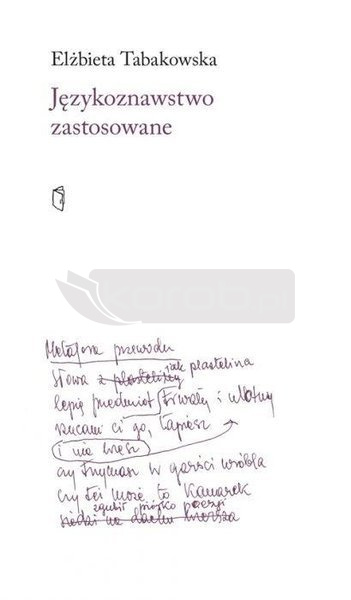 Elżbieta Tabakowska
Językoznawstwo
zastosowane
Metafora przewodu
Słowa z plasteliny jak plastelina
lepię przedmiot trwały i ulotny
rzucam ci go, łapiesz
i nie wiesz
czy trzymasz w garści wróbla
czy też może to kanarek
zgubił piórko poezji
siedzi na dachu wiersza